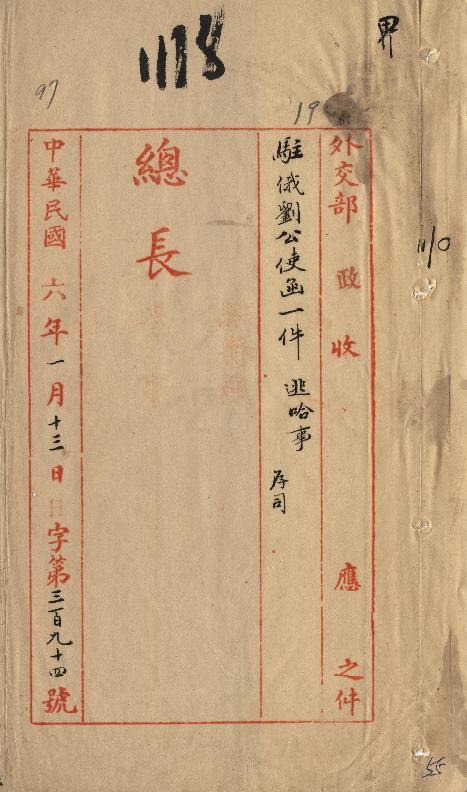 界
外交部 政 收 應 之件
駐俄劉公使函一件 逃哈事 存司
總長
中華民國 六年一月十三日 日字第三百九十四號
97
19
55